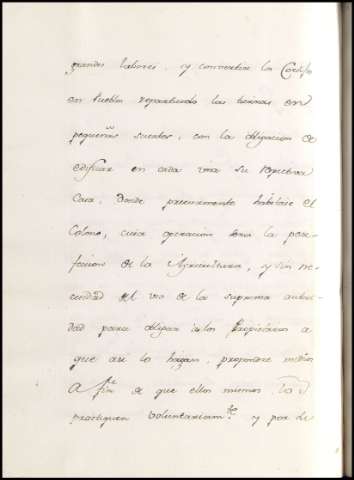 grandes labores, y convertir los Cortijos
en Pueblos repartiendo las tierras en
pequeñas suertes, con la obligacion de
edificar en cada una su respectiva
Casa, donde precisamente habitase el
Colono, cuia operacion seria la per-
feccion de la Agricultura, y sin ne-
cesidad del uso de la suprema autori-
dad para obligar à los Propietarios a
que asi lo hagan, propondré medios
a fin de que ellos mismos lo
practiquen voluntariamte. y por de